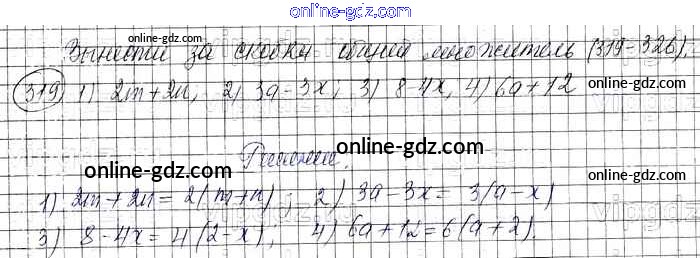 online-gdz.com
Вынести за скобки общий множитель (319-326).
319) 1) 2m+2n, 2) 3a-3x; 3) 8-4x, 4) 6a+12
online-gdz.com
online-gdz.com
online-gdz.com
Решение.
1) 2m+2n=2(m+n); 2) 3a-3x=3(a-x)
3) 8-4x=4(2-x); 4) 6a+12=6(a+2).
online-gdz.com
online-gdz.com